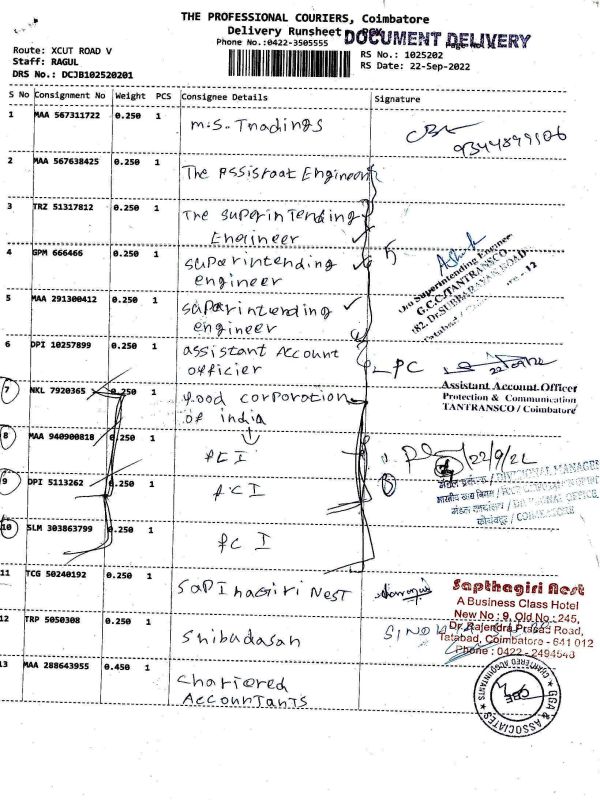 THE PROFESSIONAL COURIERS, Coimbatore
Delivery Runsheet
DOCUMENT DELIVERY
Phone No.:0422-3505555
Route: XCUT ROAD V
Staff: RAGUL
DRS No.: DCJB102520201
RS No.: 1025202
RS Date: 22-Sep-2022
S No Consignment No Weight PCS Consignee Details Signature
1 MAA 567311722 0.250 1 M.S. Tnadings
9344899106
2 MAA 567638425 0.250 1 The Assistaat Engineer
3 TRZ 51317812 0.250 1 The Superintending
Engineer
4 GPM 666466 0.250 1 Superintending
engineer
Superintending Engineer
G.C.C/TANTRANSCO
182, Dr.SUBBARAYAN ROAD
Tatabad
- 12
5 MAA 291300412 0.250 1 Superintending
engineer
6 DPI 10257899 0.250 1 assistant Account
officier
PC
Assistant Account Officer
Protection & Communication
TANTRANSCO / Coimbatore
7 NKL 7920365 0.250 1 food corporation
of india
8 MAA 940900818 0.250 1 FCI
22/9/22
9 DPI 5113262 0.250 1 FCI
DIVISIONAL MANAGER
DIVISIONAL OFFICE
कोयंबत्तूर / COIMBATORE
10 SLM 303863799 0.250 1 FCI
11 TCG 50240192 0.250 1 SaPThagiri Nest
Sapthagiri Nest
A Business Class Hotel
New No : 9, Old No : 245,
Dr. Rajendra Prasad Road,
Tatabad, Coimbatore - 641 012
Phone : 0422 - 2494543
12 TRP 5050308 0.250 1 Shibudasan
13 MAA 288643955 0.450 1 Chartered
Accountants
GGA & ASSOCIATES
CHARTERED ACCOUNTANTS
CBE